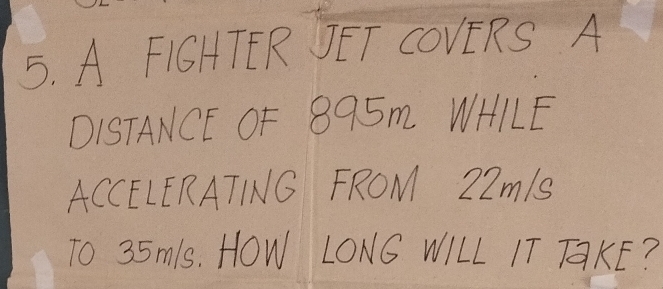 5. A FIGHTER JET COVERS A
DISTANCE OF 895m WHILE
ACCELERATING FROM 22m/s
TO 35m/s. HOW LONG WILL IT TaKE?